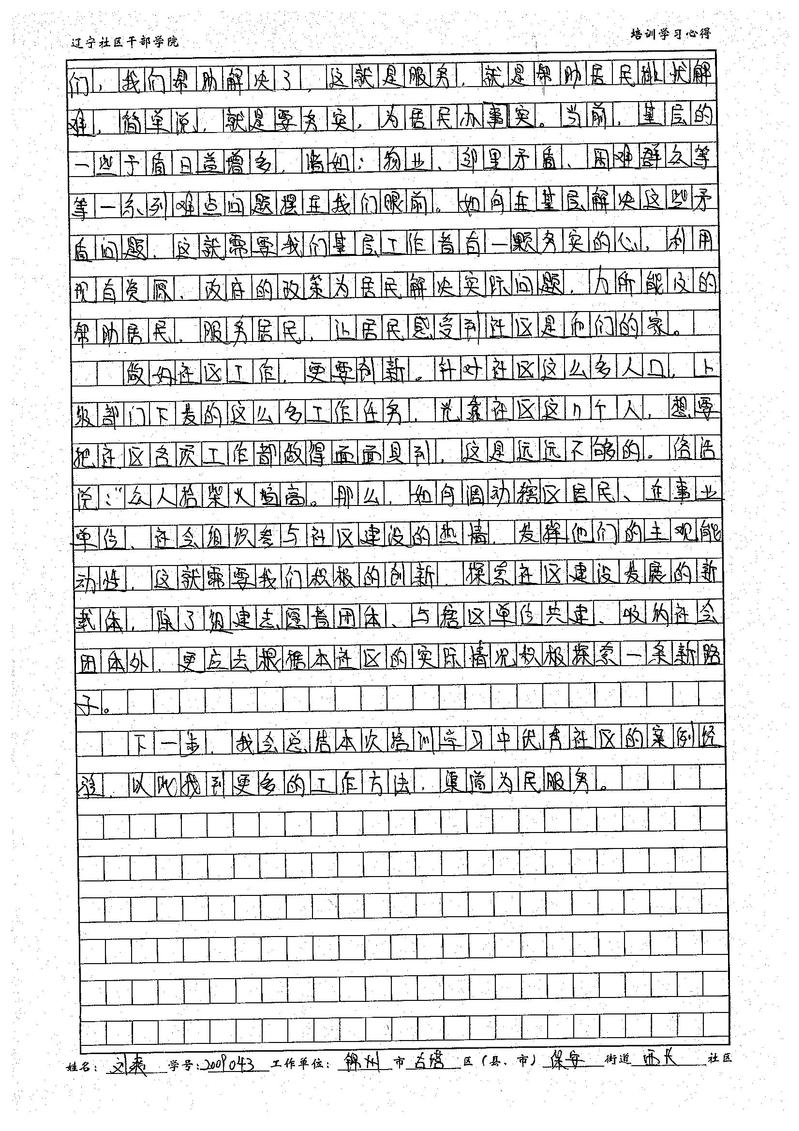 辽宁社区干部学院 培训学习心得
们，我们帮助解决了，这就是服务，就是帮助居民排忧解
难，简单说，就是要务实，为居民办事实。当前，基层的
一些矛盾日益增多，诸如：物业、邻里矛盾、困难群众等
等一系列难点问题摆在我们眼前。如何在基层解决这些矛
盾问题，这就需要我们基层工作者有一颗务实的心，利用
现有资源、政府的政策为居民解决实际问题，力所能及的
帮助居民，服务居民，让居民感受到社区是他们的家。
做好社区工作，更要创新。针对社区这么多人口，上
级部门下发的这么多工作任务，光靠社区这几个人，想要
把社区各项工作都做得面面具到，这是远远不够的。俗话
说：“众人拾柴火焰高。那么，如何调动辖区居民、企事业
单位、社会组织参与社区建设的热情，发挥他们的主观能
动性，这就需要我们积极的创新，探索社区建设发展的新
载体，除了组建志愿者团体、与辖区单位共建、吸纳社会
团体外，更应去根据本社区的实际情况积极探索一条新路
子。
下一步，我会总结本次培训学习中优秀社区的案例经
验，以此找到更多的工作方法，渠道为民服务。
姓名：刘 学号：2009043 工作单位：锦州 市 古塔 区（县、市） 保安 街道 西长 社区